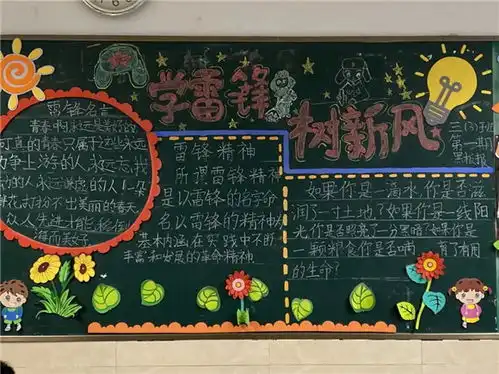 学雷锋
树新风
三(3)班
第一期
黑板报
雷锋名言
青春啊,永远是美好的
可真的青春,只属于这些永远
力争上游的人,永远忘我
劳动的人,永远谦虚的人!一朵
鲜花打扮不出美丽的春天
众人先进才能移山
填海
雷锋精神
所谓雷锋精神
是以雷锋的名字命
名以雷锋的精神为
基本内涵在实践中不断
丰富和发展的革命精神
如果你是一滴水,你是否滋
润了一寸土地?如果你是一线阳
光,你是否照亮了一分黑暗?如果你是
一颗粮食你是否哺 育了有用
的生命?